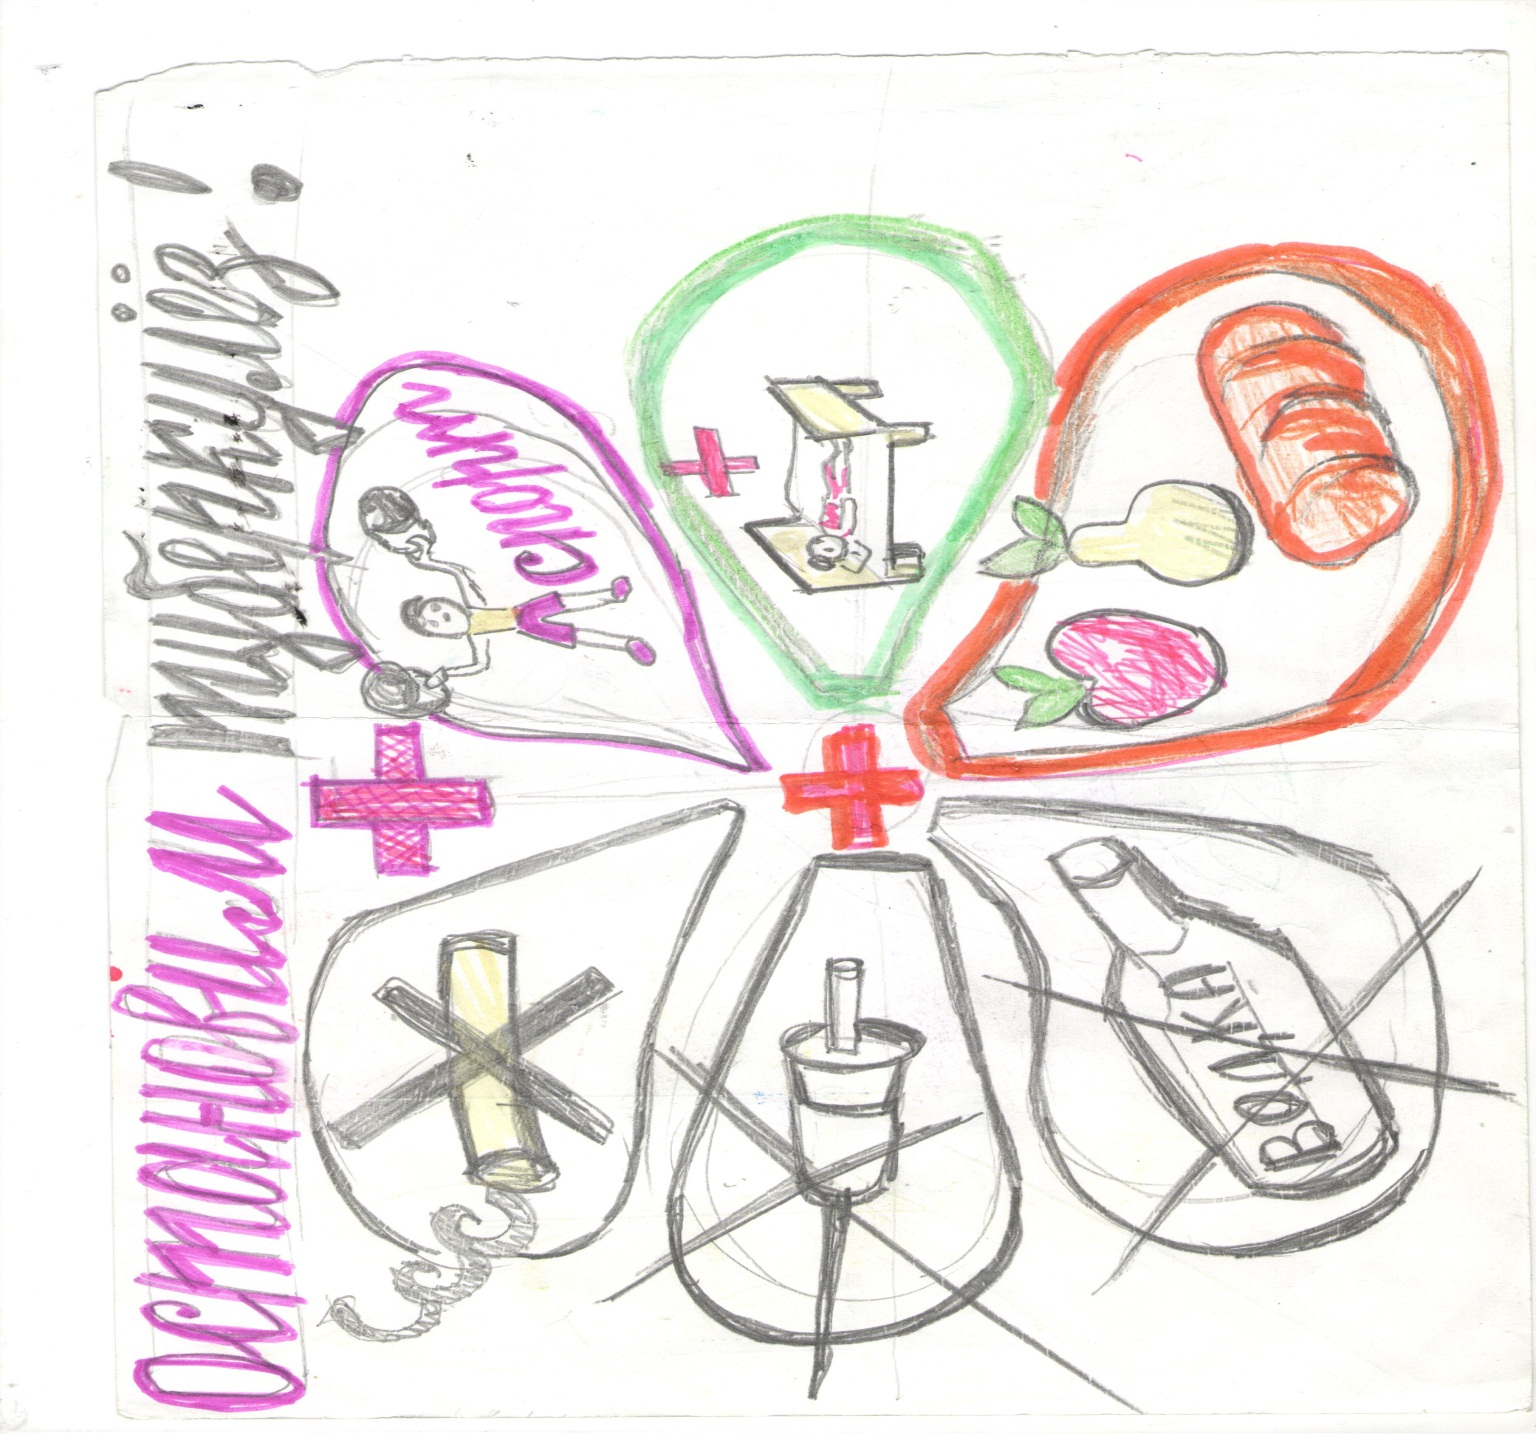 Остановим туберкулёз!
спорт
ВОДКА